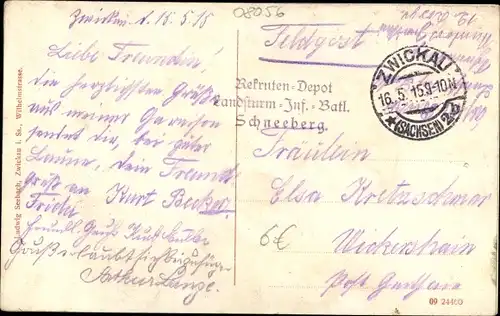 Zwickau d. 15.5.15
08056
Feldpost
Liebe Freundin!
die herzlichsten Grüße
aus meiner Garnison
sendet dir, bei guter
Laune, dein Freund
Kurt Becker
Gruß an
Frida
Gruß erlaubt sich beizufügen
Arthur Lange.
Rekruten-Depot
Landsturm-Inf.-Batl.
Schneeberg.
ZWICKAU
16.5.15.9-10N
*(SACHSEN)2c
Fräulein
Elsa Kretzschmar
6€
Wickershain
Post Geithain
Ludwig Seebach, Zwickau i. Sa., Wilhelmstrasse.
09 24460